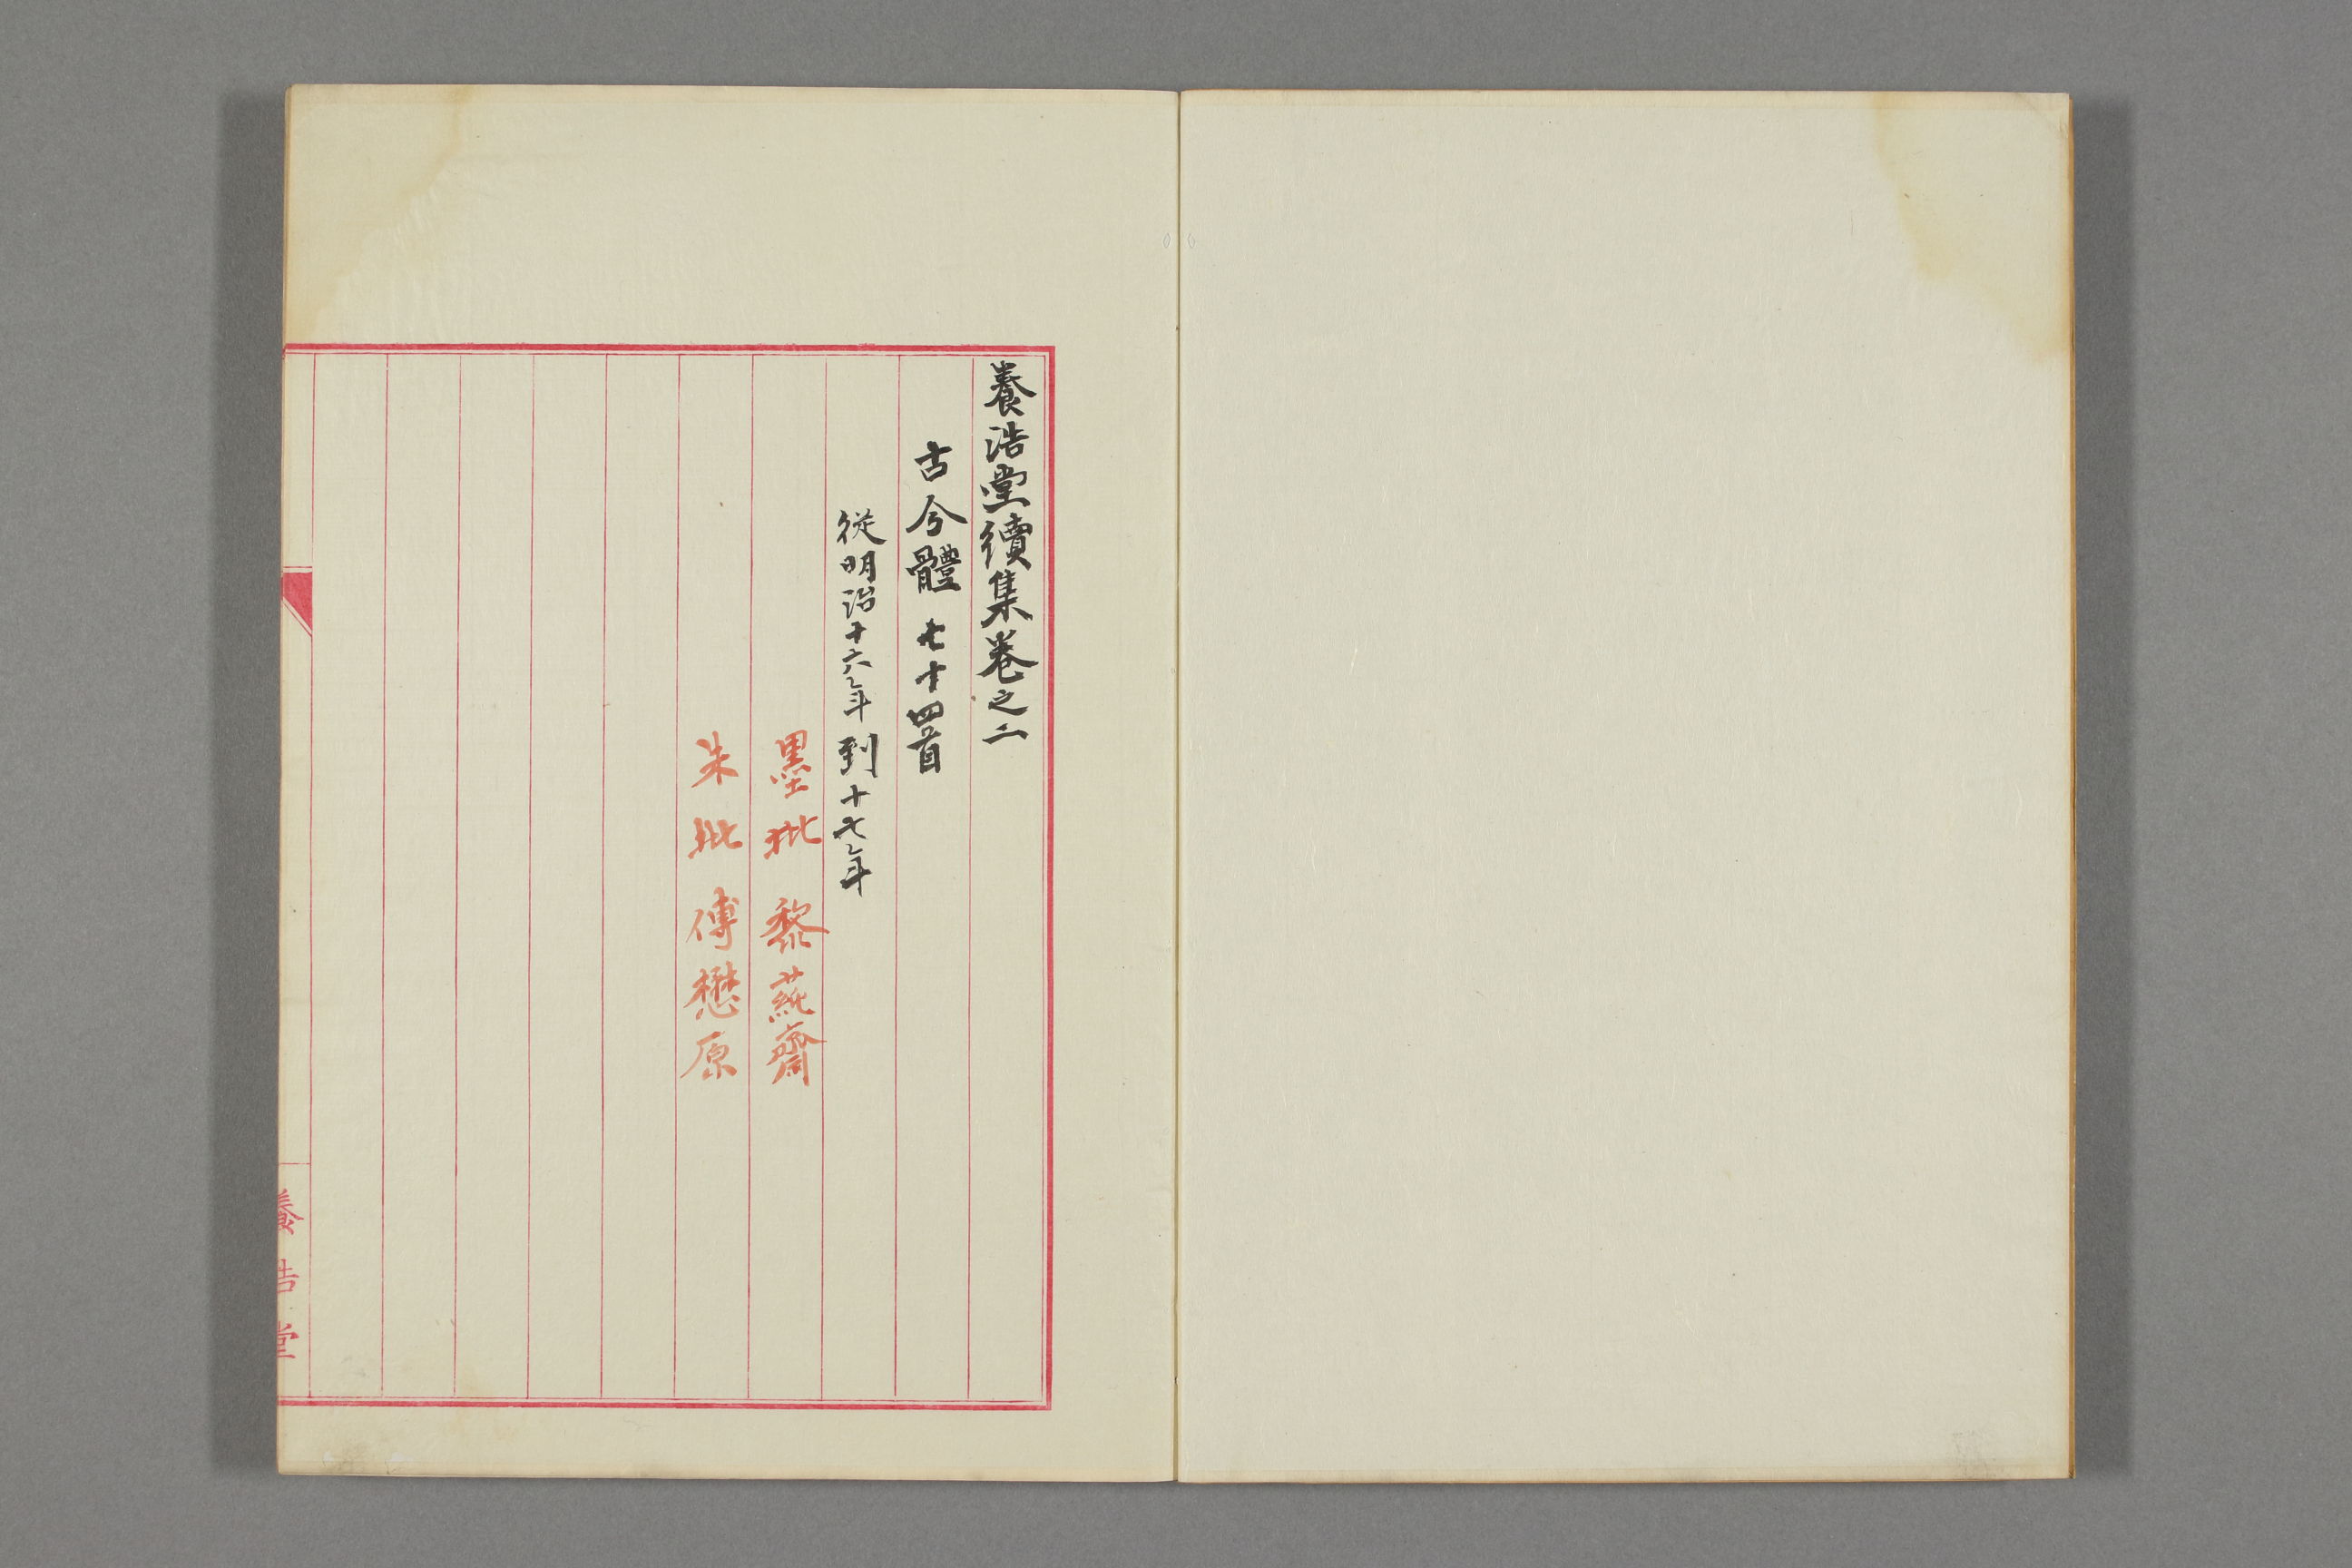 養浩堂續集卷之二
古今體七十四首
從明治十六年到十七年
墨批 黎蒓齋
朱批 傅懋原
養浩堂